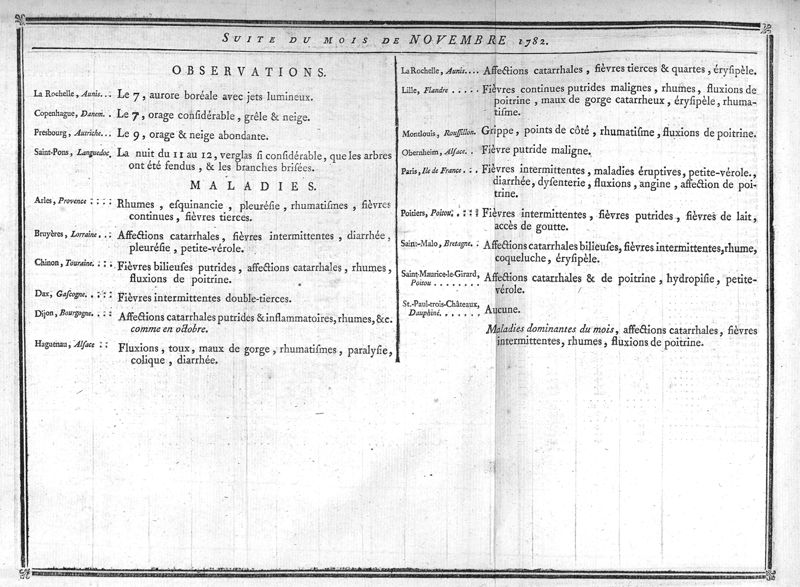 SUITE DU MOIS DE NOVEMBRE 1782.
OBSERVATIONS.
La Rochelle, Aunis... Le 7, aurore boréale avec jets lumineux.
Copenhague, Danem.. Le 7, orage conſidérable, grêle & neige.
Presbourg, Autriche... Le 9, orage & neige abondante.
Saint-Pons, Languedoc. La nuit du 11 au 12, verglas ſi conſidérable, que les arbres
ont été fendus, & les branches briſées.
MALADIES.
Arles, Provence :::: Rhumes, eſquinancie, pleuréſie, rhumatiſmes, fièvres
continues, fièvres tierces.
Bruyères, Lorraine.. Affections catarrhales, fièvres intermittentes, diarrhée,
pleuréſie, petite-vérole.
Chinon, Touraine. ::: Fièvres bilieuſes putrides, affections catarrhales, rhumes,
fluxions de poitrine.
Dax, Gaſcogne. .::: Fièvres intermittentes double-tierces.
Dijon, Bourgogne. .:: Affections catarrhales putrides & inflammatoires, rhumes, &c.
comme en octobre.
Haguenau, Alſace :: Fluxions, toux, maux de gorge, rhumatiſmes, paralyſie,
colique, diarrhée.
La Rochelle, Aunis.... Affections catarrhales, fièvres tierces & quartes, éryſipèle.
Lille, Flandre ..... Fièvres continues putrides malignes, rhumes, fluxions de
poitrine, maux de gorge catarrheux, éryſipèle, rhuma-
tiſme.
Montlouis, Rouſſillon. Grippe, points de côté, rhumatiſme, fluxions de poitrine.
Obernheim, Alſace.. Fièvre putride maligne.
Paris, Ile de France. :. Fièvres intermittentes, maladies éruptives, petite-vérole.,
diarrhée, dyſenterie, fluxions, angine, affection de poi-
trine.
Poitiers, Poitou. .::: Fièvres intermittentes, fièvres putrides, fièvres de lait,
accès de goutte.
Saint-Malo, Bretagne. . Affections catarrhales bilieuſes, fièvres intermittentes, rhume,
coqueluche, éryſipèle.
Saint-Maurice-le-Girard, Affections catarrhales & de poitrine, hydropiſie, petite-
Poitou ........ vérole.
St.-Paul-trois-Châteaux,
Dauphiné. ...... Aucune.
Maladies dominantes du mois, affections catarrhales, fièvres
intermittentes, rhumes, fluxions de poitrine.